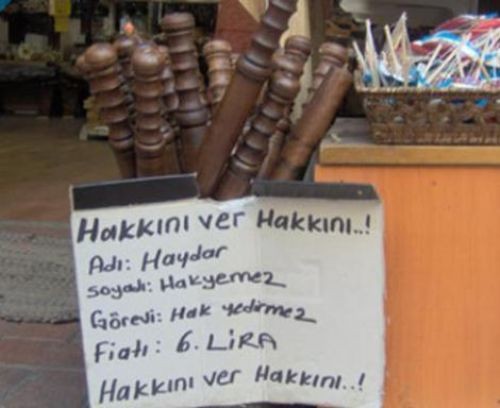 Hakkını ver Hakkını..!
Adı: Haydar
Soyadı: Hakyemez
Görevi: Hak yedirmez
Fiatı: 6. LİRA
Hakkını ver Hakkını..!